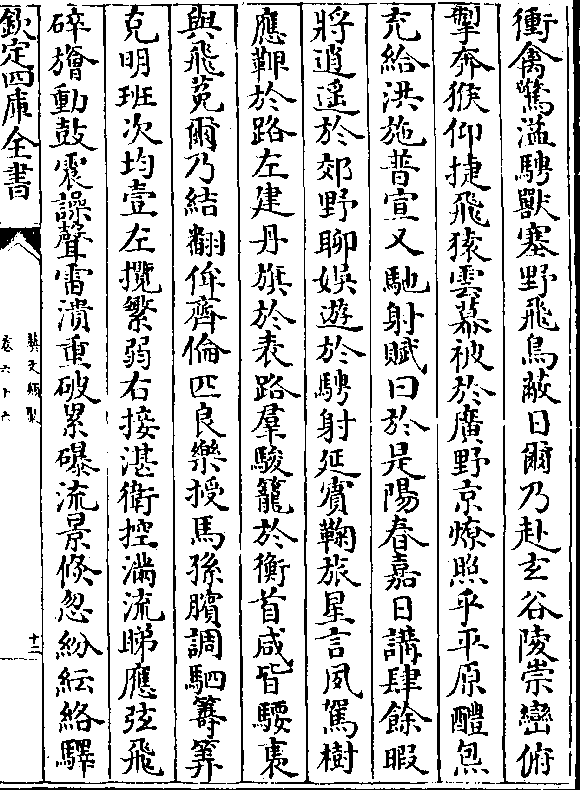 衝禽驚溢騁獸塞野飛鳥蔽日爾乃赴玄谷陵崇巒俯
掣奔猴仰捷飛猿雲幕被於廣野京燎照乎平原醴炰
充給洪施普宣又馳射賦曰於是陽春嘉日講肆餘暇
將逍遙於郊野聊娛遊於騁射延賓鞠旅星言夙駕樹
應鞞於路左建丹旗於表路羣駿籠於衡首咸皆騕褭
與飛菟爾乃結翻侔齊倫匹良樂授馬孫臏調駟籌筭
克明班次均壹左攬繁弱右接湛衛控滿流睇應弦飛
碎旝動鼓震譟聲雷潰重破累礫流景倏忽紛紜絡驛
欽定四庫全書
藝文類聚
卷六十六
十二